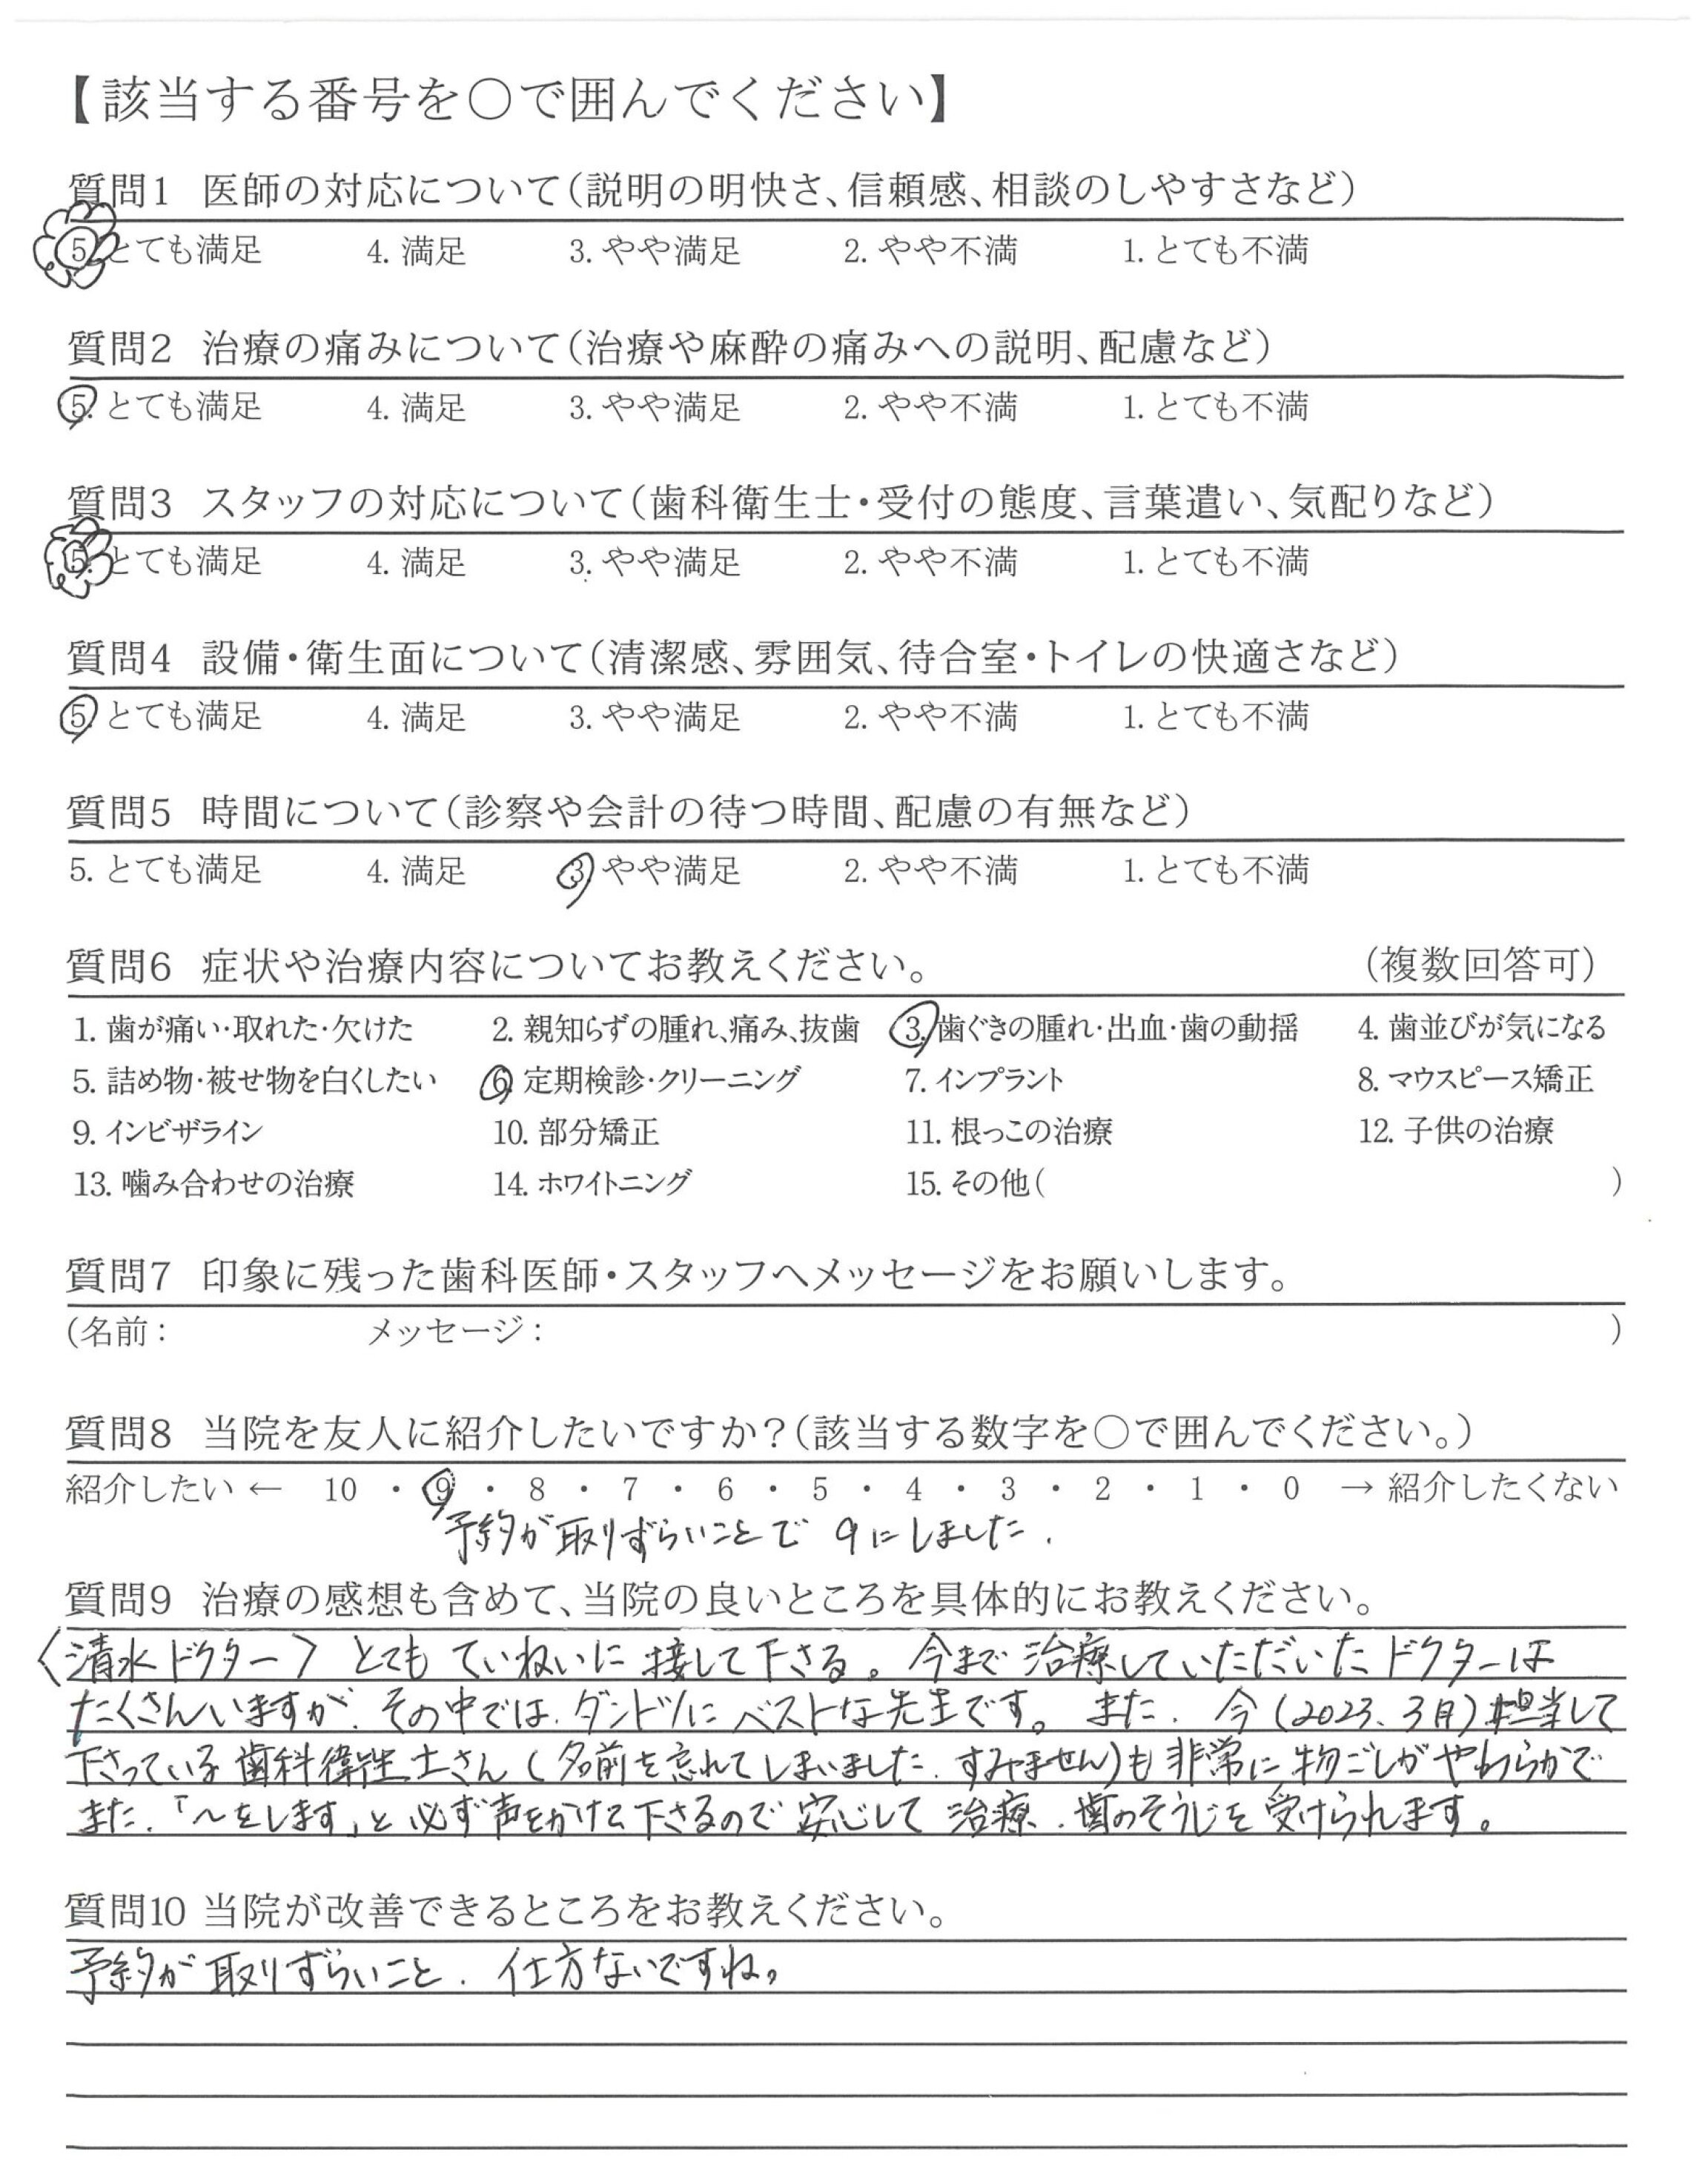 【該当する番号を○で囲んでください】
質問1 医師の対応について（説明の明快さ、信頼感、相談のしやすさなど）
5. とても満足 4. 満足 3. やや満足 2. やや不満 1. とても不満
質問2 治療の痛みについて（治療や麻酔の痛みへの説明、配慮など）
5. とても満足 4. 満足 3. やや満足 2. やや不満 1. とても不満
質問3 スタッフの対応について（歯科衛生士・受付の態度、言葉遣い、気配りなど）
5. とても満足 4. 満足 3. やや満足 2. やや不満 1. とても不満
質問4 設備・衛生面について（清潔感、雰囲気、待合室・トイレの快適さなど）
5. とても満足 4. 満足 3. やや満足 2. やや不満 1. とても不満
質問5 時間について（診察や会計の待つ時間、配慮の有無など）
5. とても満足 4. 満足 3. やや満足 2. やや不満 1. とても不満
質問6 症状や治療内容についてお教えください。 （複数回答可）
1. 歯が痛い・取れた・欠けた 2. 親知らずの腫れ、痛み、抜歯 3. 歯ぐきの腫れ・出血・歯の動揺 4. 歯並びが気になる
5. 詰め物・被せ物を白くしたい 6. 定期検診・クリーニング 7. インプラント 8. マウスピース矯正
9. インビザライン 10. 部分矯正 11. 根っこの治療 12. 子供の治療
13. 噛み合わせの治療 14. ホワイトニング 15. その他（ ）
質問7 印象に残った歯科医師・スタッフへメッセージをお願いします。
（名前： メッセージ： ）
質問8 当院を友人に紹介したいですか？（該当する数字を○で囲んでください。）
紹介したい ← 10 ・ 9 ・ 8 ・ 7 ・ 6 ・ 5 ・ 4 ・ 3 ・ 2 ・ 1 ・ 0 → 紹介したくない
予約が取りずらいことで 9にしました．
質問9 治療の感想も含めて、当院の良いところを具体的にお教えください。
〈清水ドクター〉とてもていねいに接して下さる。今まで治療していただいたドクターは
たくさんいますが、その中では、ダントツにベストな先生です。また、今（2023、3月）担当して
下さっている歯科衛生士さん（名前を忘れてしまいました．すみません）も非常に物ごしがやわらかで
また、「〜をします」と必ず声をかけて下さるので安心して治療．歯のそうじを受けられます。
質問10 当院が改善できるところをお教えください。
予約が取りずらいこと．仕方ないですね。